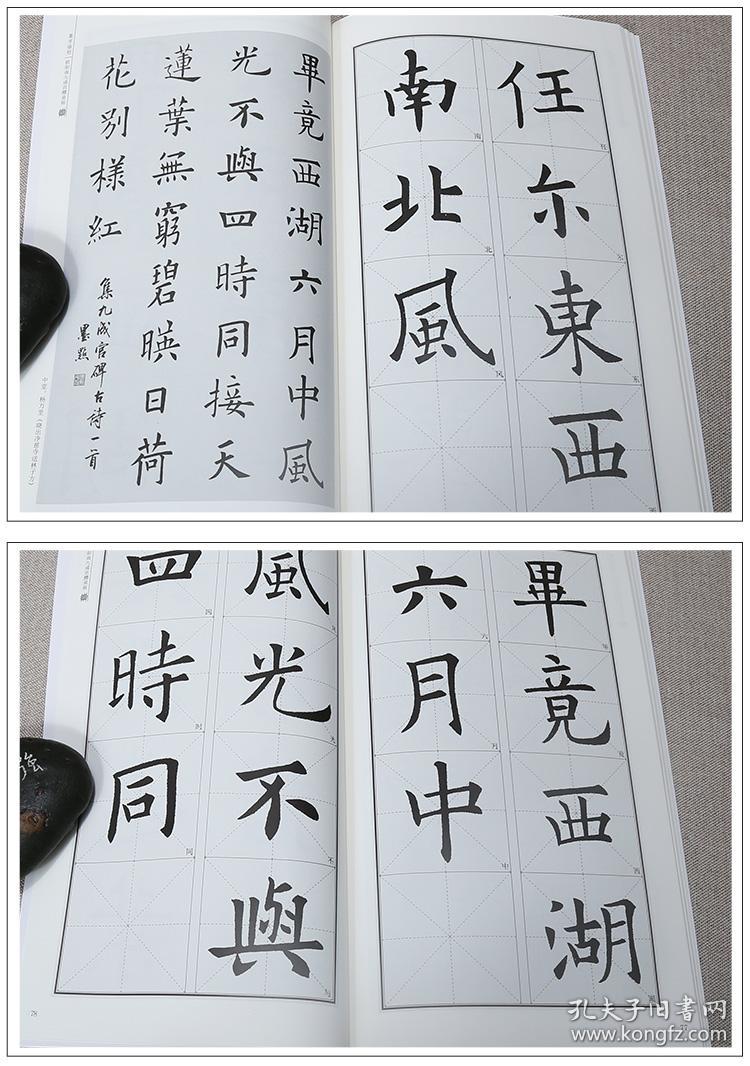 任尔東西
南北風
畢竟西湖六月中風
光不與四時同接天
蓮葉無窮碧暎日荷
花別樣紅
集九成宫碑古詩一首
墨點
中堂·杨万里《晓出净慈寺送林子方》
畢竟西湖
六月中
風光不與
四時同
78
77
孔夫子旧书网
www.kongfz.com